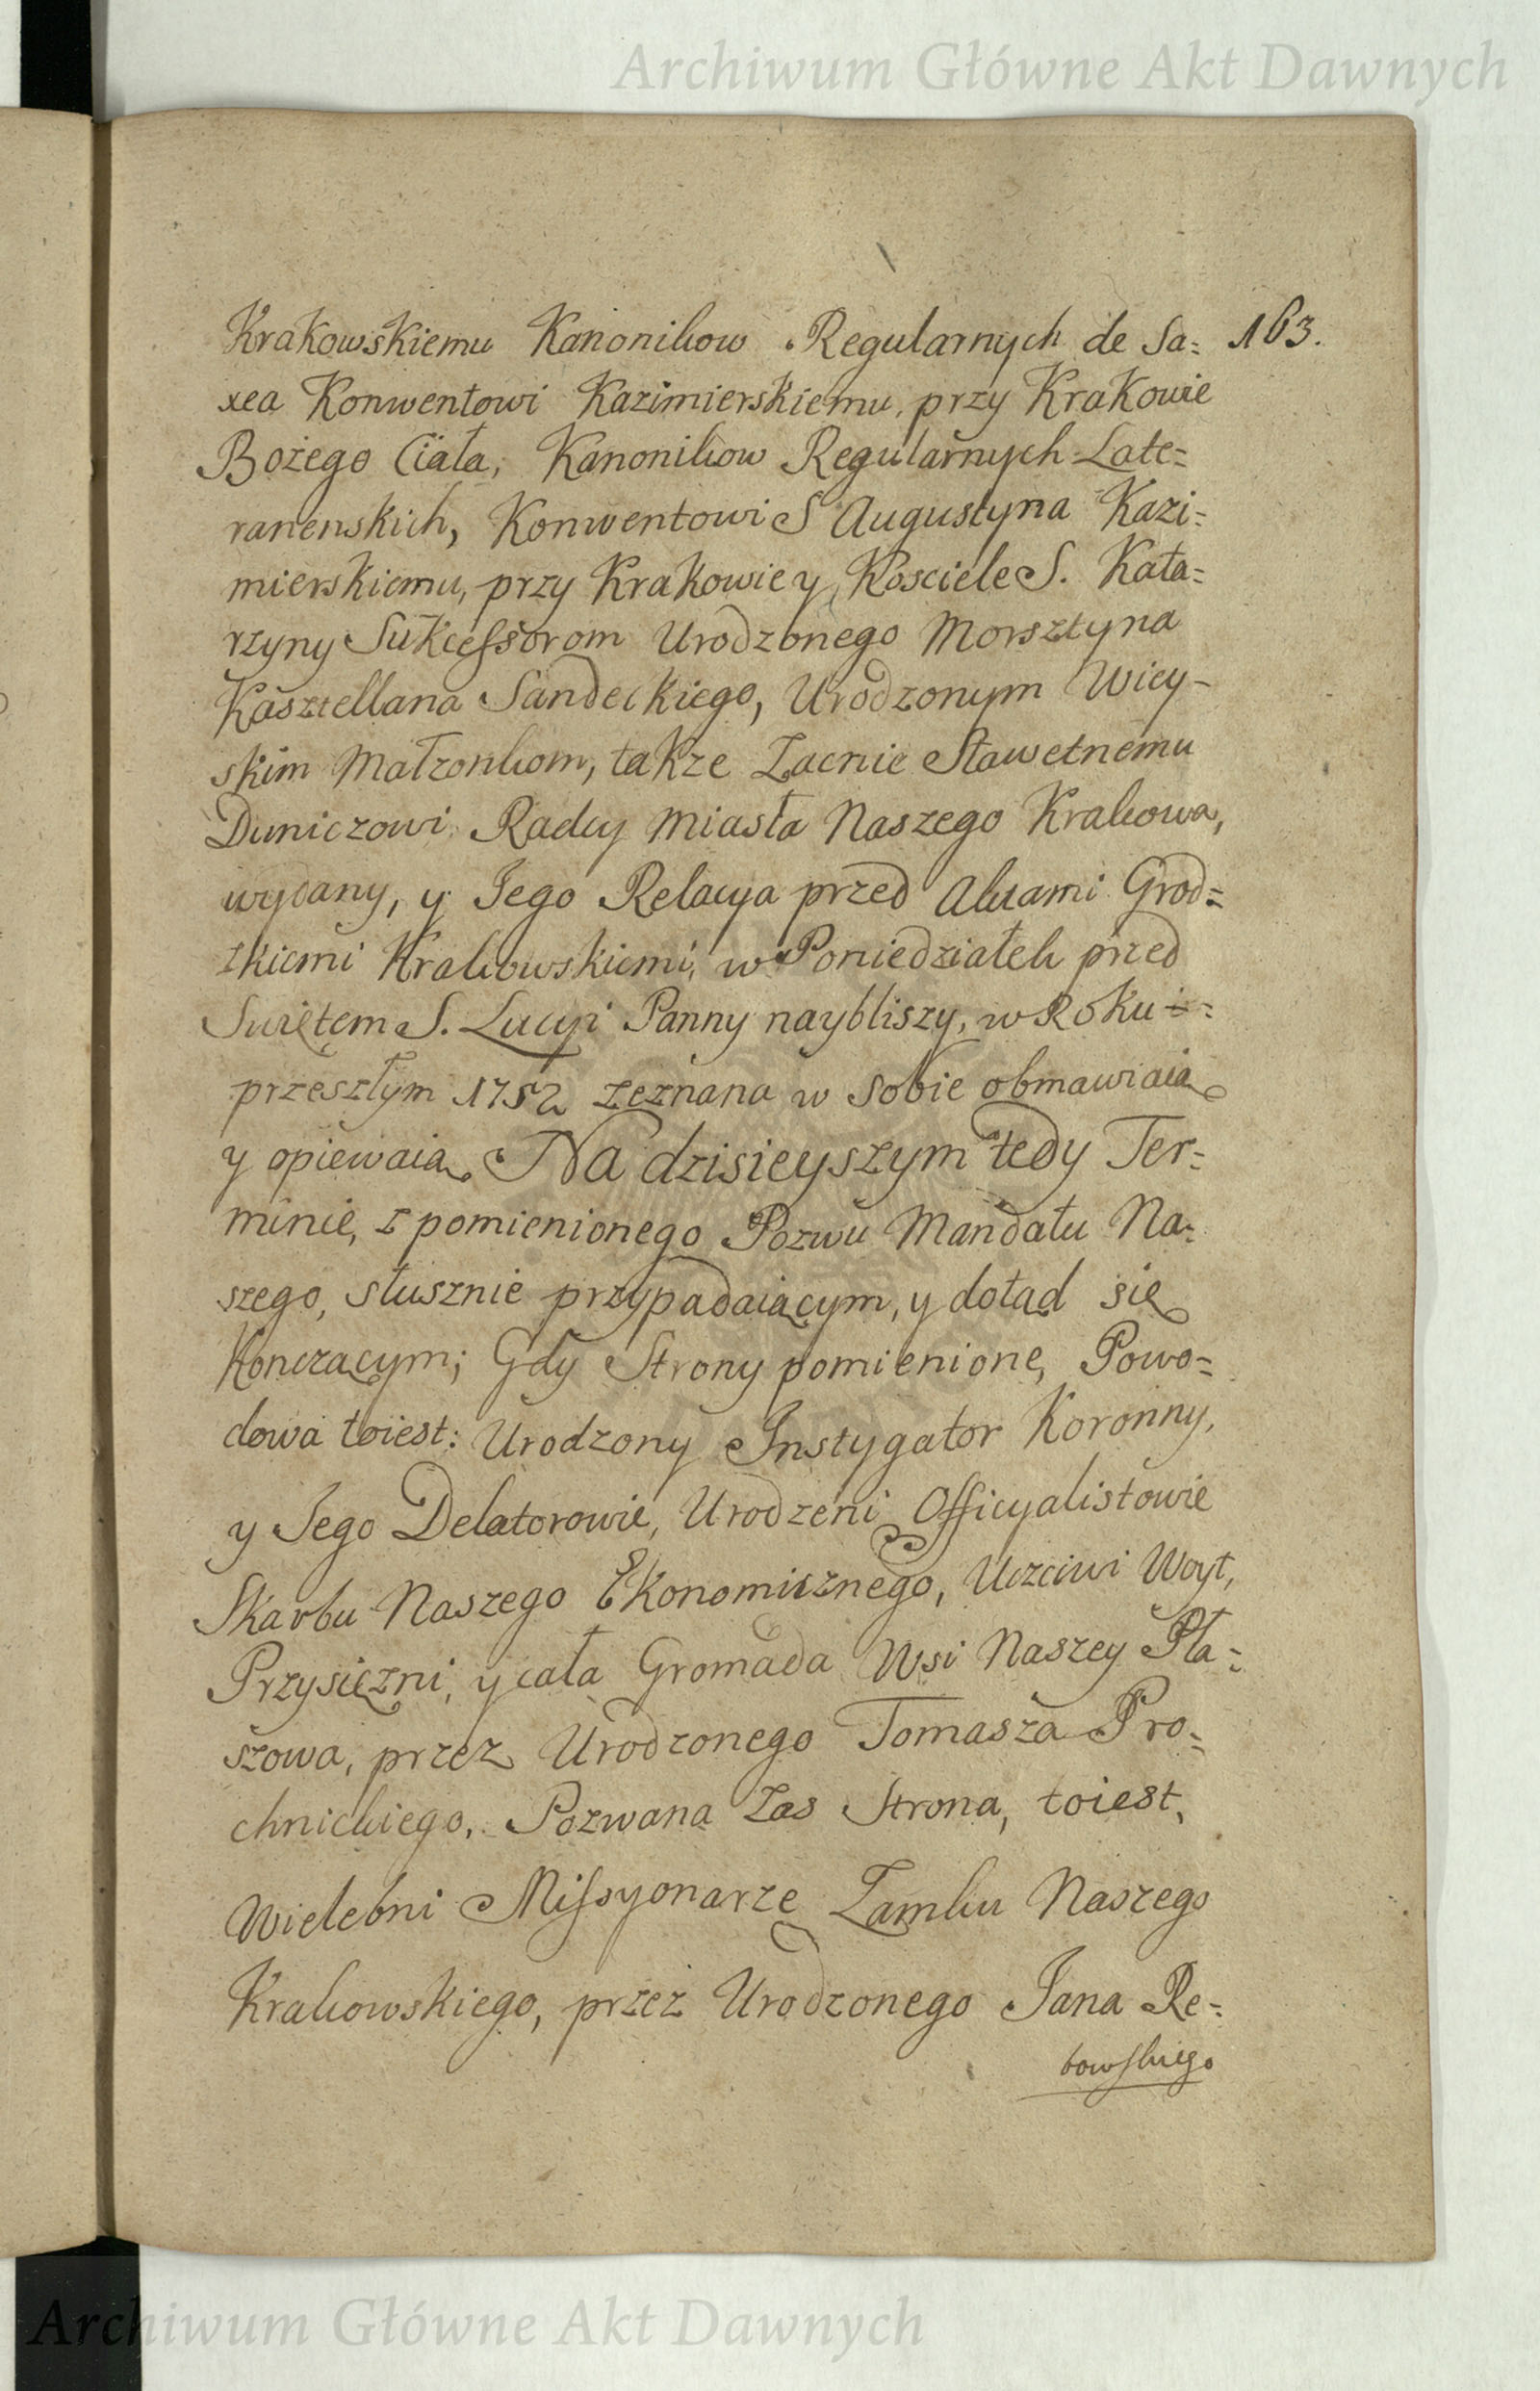 Archiwum Główne Akt Dawnych
163.
Krakowskiemu Kanonikow Regularnych de Sa=
xea Konwentowi Kazimierskiemu, przy Krakowie
Bożego Ciała, Kanonikow Regularnych Late=
ranenskich, Konwentowi S Augustyna Kazi=
mierskiemu, przy Krakowie y Kosciele S. Kata=
rzyny Sukcessorom Urodzonego Morsztyna
Kasztellana Sandeckiego, Urodzonym Wiey-
skim Małzonkom, takze Zacnie Sławetnemu
Duniczowi Radcy Miasta Naszego Krakowa,
wydany, y Jego Relacya przed Aktami Grod=
zkiemi Krakowskiemi, w Poniedziałek przed
Swiętem S. Lucyi Panny naybliszy, w Roku =
przeszłym 1752 zeznana w sobie obmawiaią
y opiewaią. Na dzisieyszym tedy Ter=
minie, z pomienionego Pozwu Mandatu Na=
szego, słusznie przypadaiącym, y dotąd się
Konczącym; Gdy Strony pomienione, Powo=
dowa toiest: Urodzony Instygator Koronny,
y Jego Delatorowie, Urodzeni Officyalistowie
Skarbu Naszego Ekonomicznego, Uczciwi Woyt,
Przysiężni, y cała Gromada Wsi Naszey Pła=
szowa, przez Urodzonego Tomasza Pro=
chnickiego, Pozwana zas Strona, toiest,
Wielebni Missyonarze Zamku Naszego
Krakowskiego, przez Urodzonego Jana Re=
bowskiego
Archiwum Główne Akt Dawnych